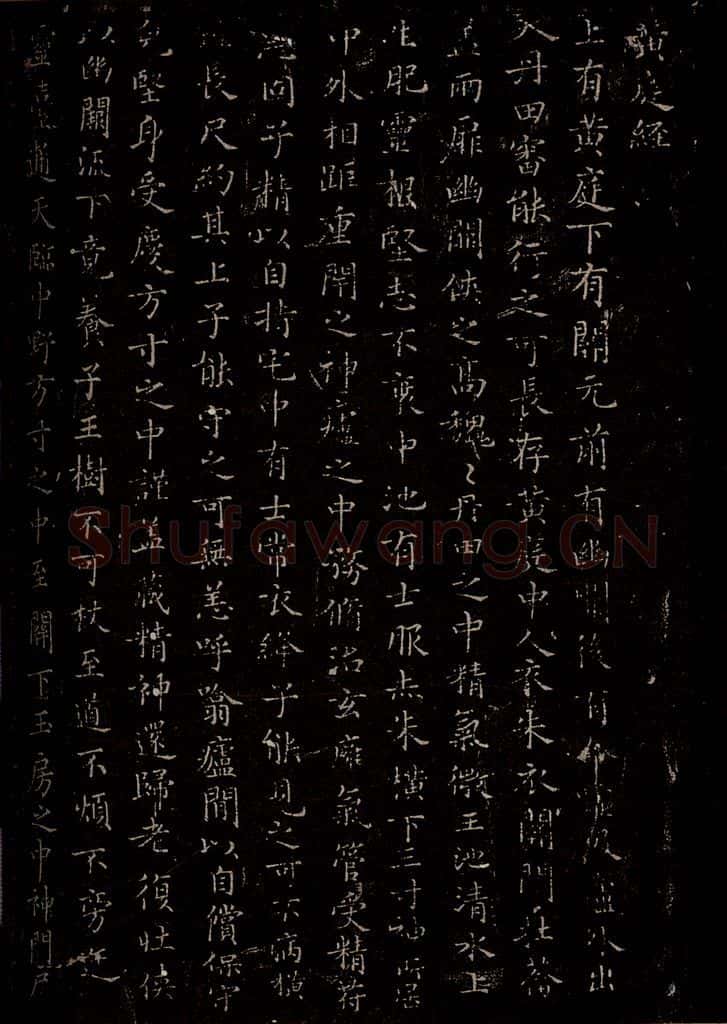 黃庭經
上有黃庭下有關元前有幽闕後有命噓吸廬外出
入丹田審能行之可長存黃庭中人衣朱衣關門壯籥
蓋兩扉幽闕俠之高魏〻丹田之中精氣微玉池清水上
生肥靈根堅志不衰中池有士服赤朱橫下三寸神所居
中外相距重閉之神廬之中務脩治玄廱氣管受精符
急固子精以自持宅中有士常衣絳子能見之可不病橫
理長尺約其上子能守之可無恙呼噏廬間以自償保守
完堅身受慶方寸之中謹蓋藏精神還歸老復壯俠
以幽闕流下竟養子玉樹不可杖至道不煩不旁迕
靈臺通天臨中野方寸之中至關下玉房之中神門戶
Shufawang.CN